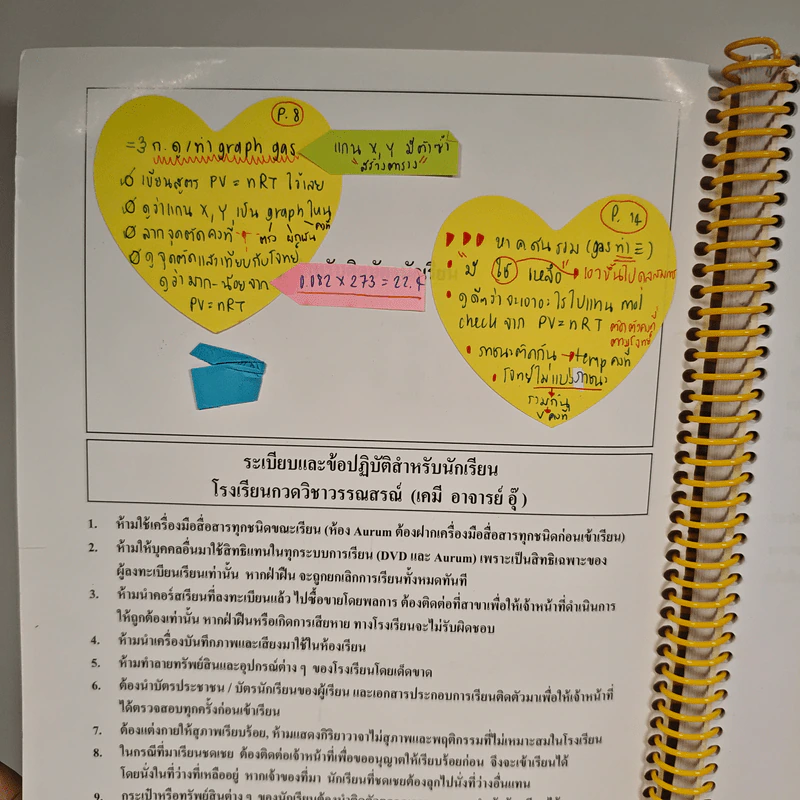 P. 8
= 3 ก. ดู/ทำ graph gas
แกน X, Y มีค่าซ้ำ
"สร้างตาราง"
เขียนสูตร PV = nRT ไว้เลย
ดูว่าแกน X, Y เป็น graph ไหน
ลากจุดตัดคงที่
ดูจุดตัดแล้วเทียบกับโจทย์
ดูว่า มาก-น้อย จาก
PV = nRT
0.082 x 273 = 22.4
P. 14
หาความดันรวม (gas ทำ
มี ใช้ เหลือ
ดูดีๆว่าจะเอาอะไรไปแทน mol
check จาก PV = nRT
ภาชนะติดกัน → temp คงที่
โจทย์ไม่แบ่งภาชนะ
รวมกัน
V คงที่
ระเบียบและข้อปฏิบัติสำหรับนักเรียน
โรงเรียนกวดวิชาวรรณสรณ์ (เคมี อาจารย์ อุ๊ )
1. ห้ามใช้เครื่องมือสื่อสารทุกชนิดขณะเรียน (ห้อง Aurum ต้องฝากเครื่องมือสื่อสารทุกชนิดก่อนเข้าเรียน)
2. ห้ามให้บุคคลอื่นมาใช้สิทธิแทนในทุกระบบการเรียน (DVD และ Aurum) เพราะเป็นสิทธิเฉพาะของ
ผู้ลงทะเบียนเรียนเท่านั้น หากฝ่าฝืน จะถูกยกเลิกการเรียนทั้งหมดทันที
3. ห้ามนำคอร์สเรียนที่ลงทะเบียนแล้ว ไปซื้อขายโดยพลการ ต้องติดต่อที่สาขาเพื่อให้เจ้าหน้าที่ดำเนินการ
ให้ถูกต้องเท่านั้น หากฝ่าฝืนหรือเกิดการเสียหาย ทางโรงเรียนจะไม่รับผิดชอบ
4. ห้ามนำเครื่องบันทึกภาพและเสียงมาใช้ในห้องเรียน
5. ห้ามทำลายทรัพย์สินและอุปกรณ์ต่าง ๆ ของโรงเรียนโดยเด็ดขาด
6. ต้องนำบัตรประชาชน / บัตรนักเรียนของผู้เรียน และเอกสารประกอบการเรียนติดตัวมาเพื่อให้เจ้าหน้าที่
ได้ตรวจสอบทุกครั้งก่อนเข้าเรียน
7. ต้องแต่งกายให้สุภาพเรียบร้อย, ห้ามแสดงกิริยาวาจาไม่สุภาพและพฤติกรรมที่ไม่เหมาะสมในโรงเรียน
8. ในกรณีที่มาเรียนชดเชย ต้องติดต่อเจ้าหน้าที่เพื่อขออนุญาตให้เรียบร้อยก่อน จึงจะเข้าเรียนได้
โดยนั่งในที่ว่างที่เหลืออยู่ หากเจ้าของที่มา นักเรียนที่ชดเชยต้องลุกไปนั่งที่ว่างอื่นแทน
9. กระเป๋าหรือทรัพย์สินต่าง ๆ ของนักเรียนต้องนำติดตัว